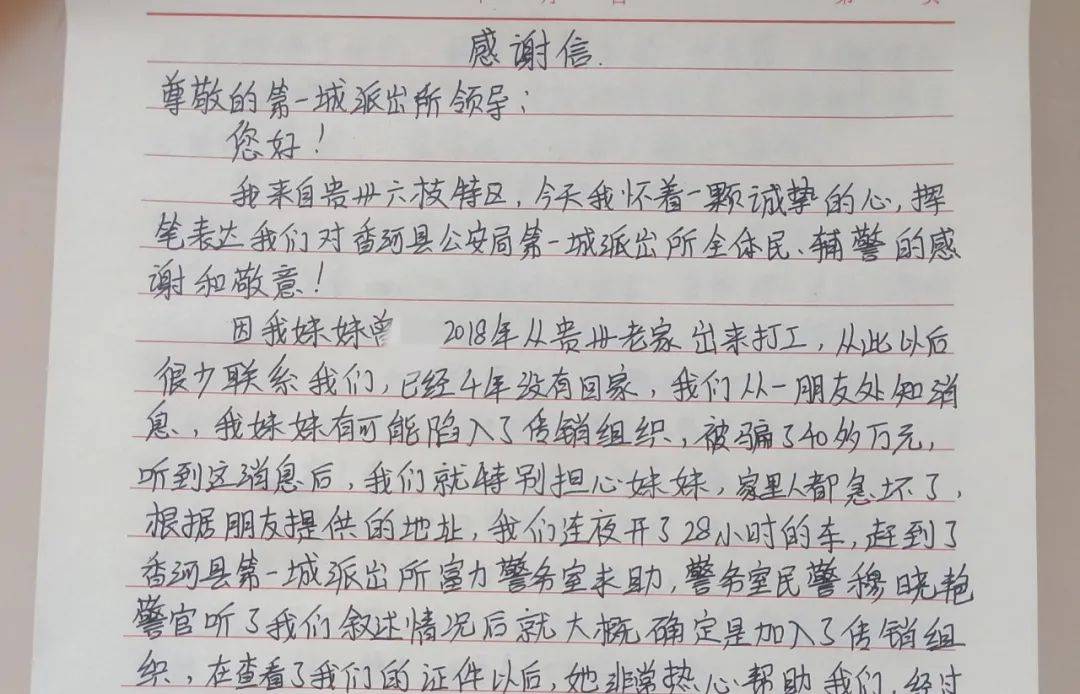 感谢信.
尊敬的第一城派出所领导:
您好!
我来自贵州六枝特区,今天我怀着一颗诚挚的心,挥
笔表达我们对香河县公安局第一城派出所全体民、辅警的感
谢和敬意!
因我妹妹曾 2018年从贵州老家出来打工,从此以后
很少联系我们,已经4年没有回家,我们从一朋友处知消
息,我妹妹有可能陷入了传销组织,被骗了40多万元,
听到这消息后,我们就特别担心妹妹,家里人都急坏了,
根据朋友提供的地址,我们连夜开了28小时的车,赶到了
香河县第一城派出所富力警务室求助,警务室民警穆晓艳
警官听了我们叙述情况后就大概确定是加入了传销组
织,在查看了我们的证件以后,她非常热心帮助我们,经过